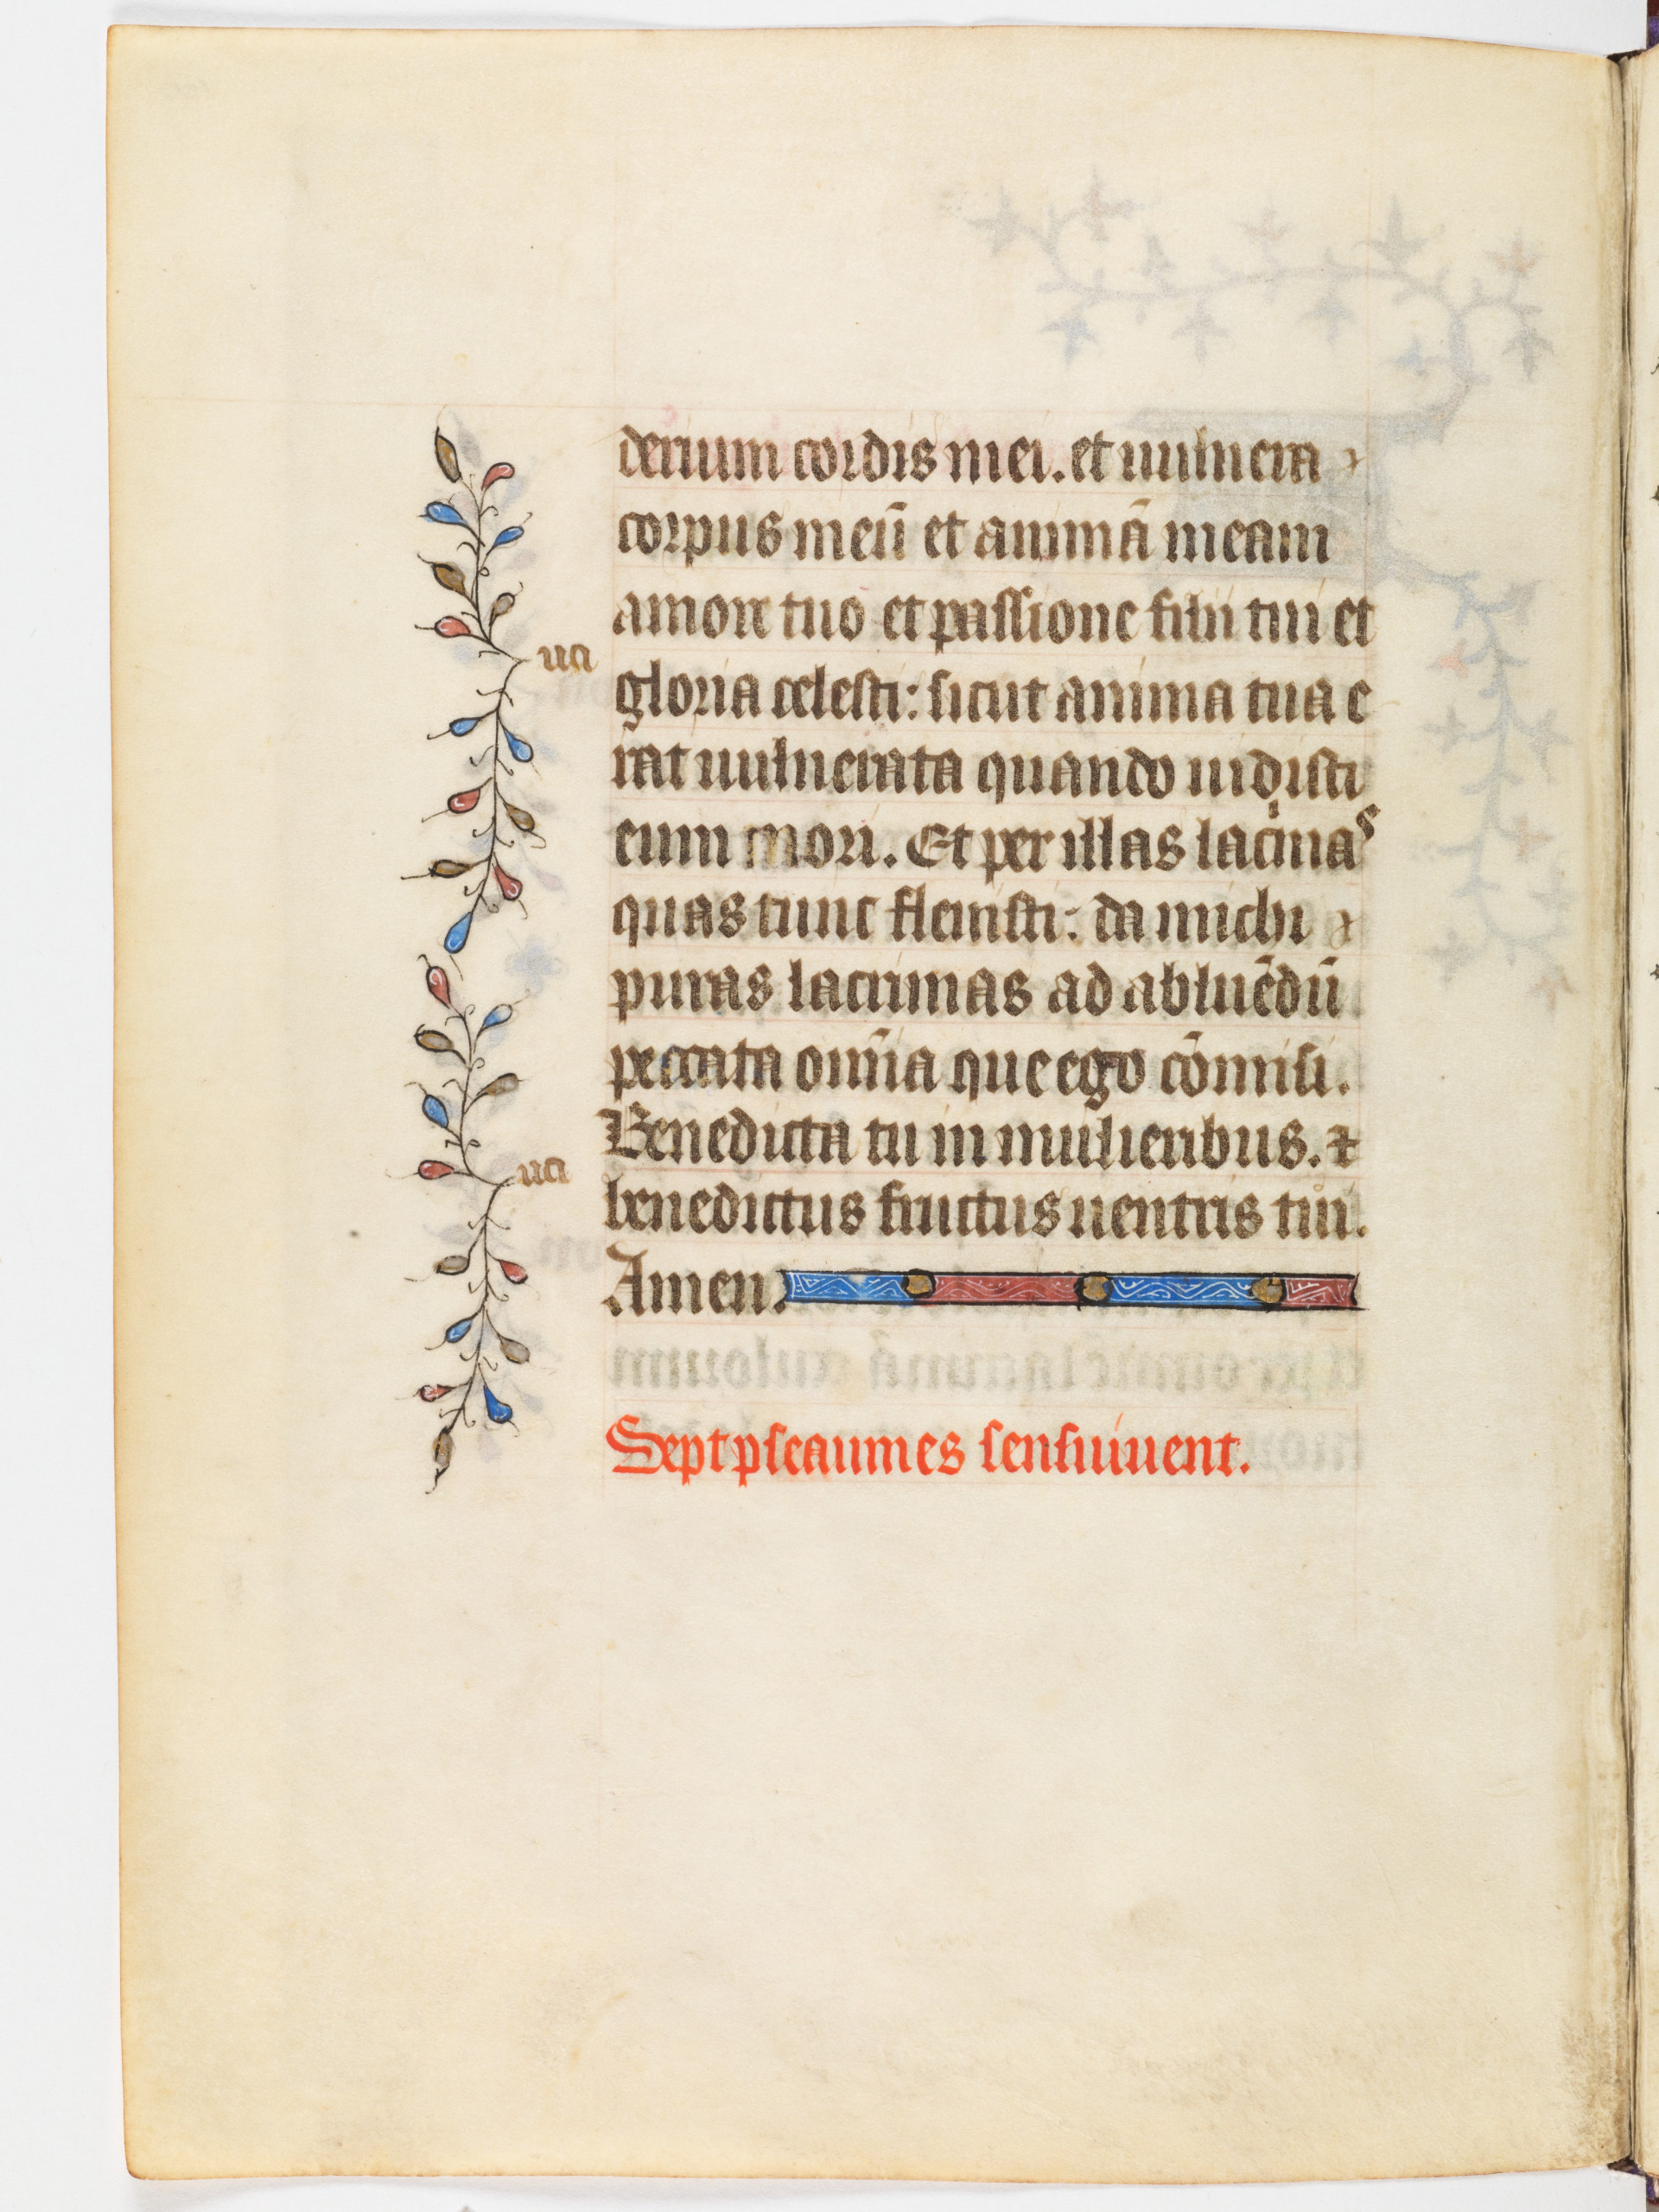 derium cordis mei. et uulnera
corpus meū et animā meam
amore tuo et passione filii tui et
uci
gloria celesti: sicut anima tua e
rat uulnerata quando uidisti
eum mori. Et per illas lacrimas
quas tunc fleuisti: da michi
puras lacrimas ad abluēdū
peccata om̄ia que ego cōmisi.
Benedicta tu in mulieribus. ⁊
uci
benedictus fructus uentris tui.
Amen.
Sept pseaumes sensuiuent.